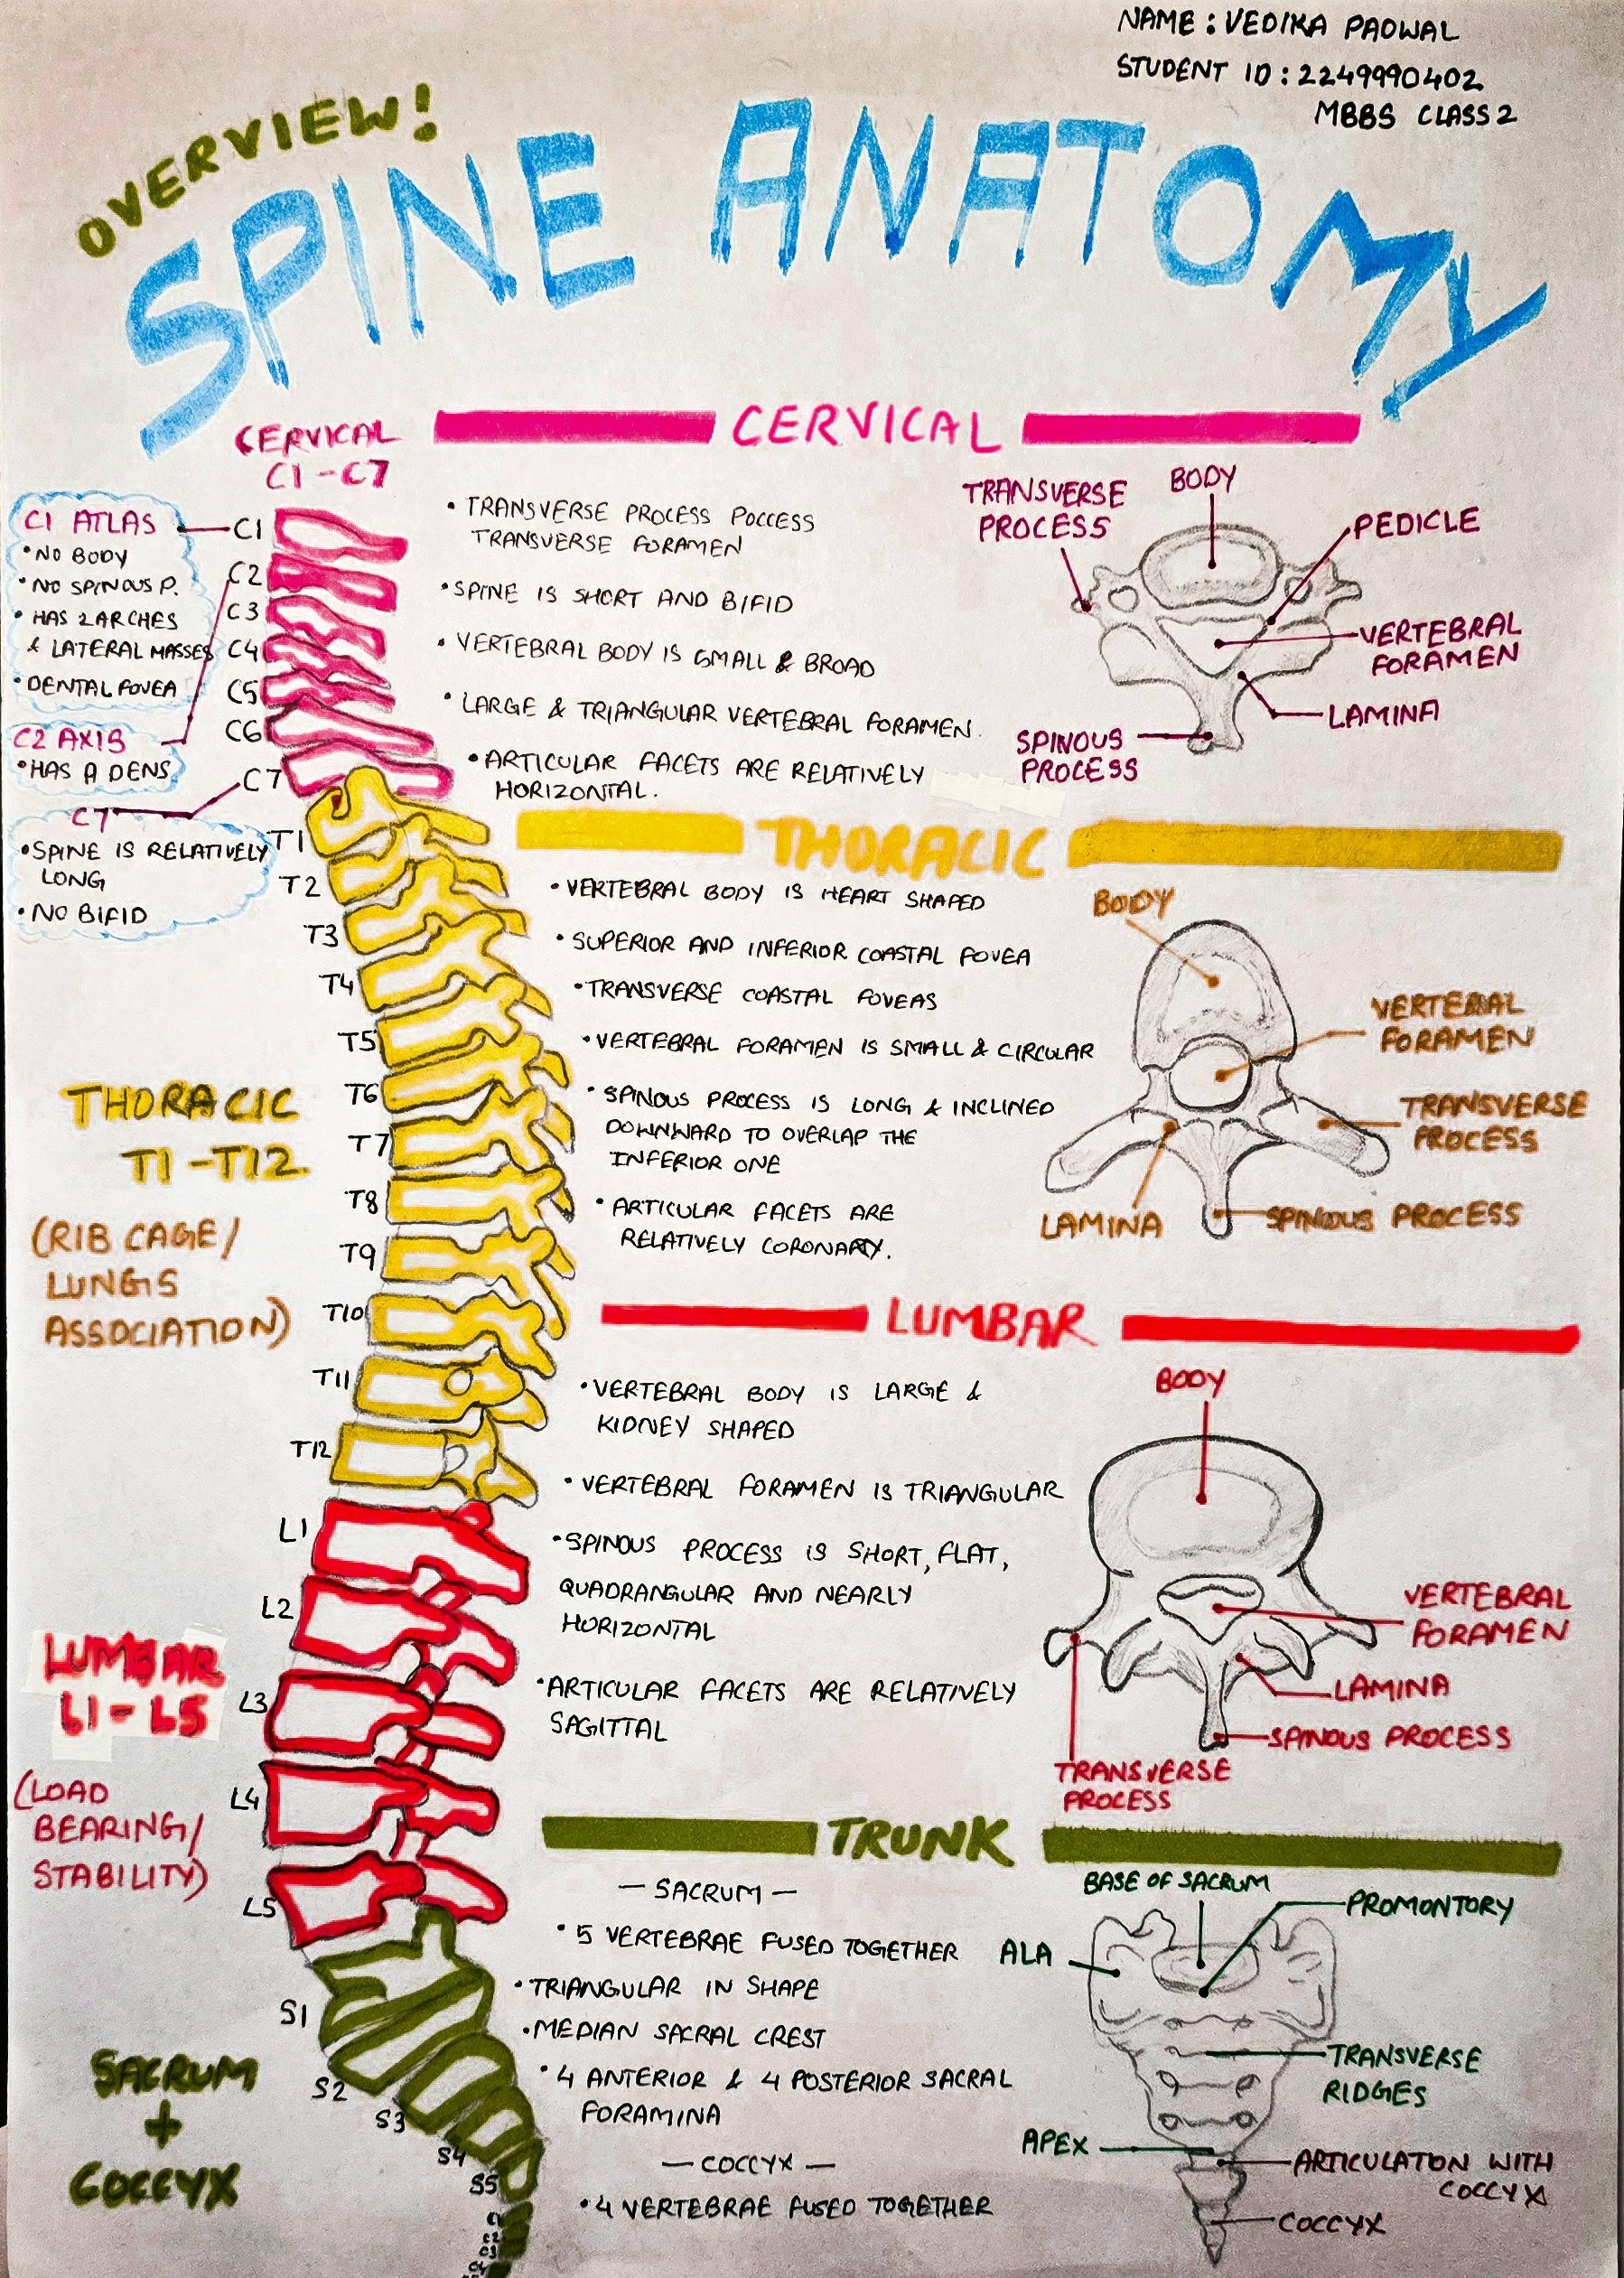 NAME : VEDIKA PADWAL
STUDENT ID : 2249990402
MBBS CLASS 2
OVERVIEW!
SPINE ANATOMY
CERVICAL
C1 - C7
C1 ATLAS
• NO BODY
• NO SPINOUS P.
• HAS 2 ARCHES
& LATERAL MASSES
• DENTAL FOVEA
C2 AXIS
• HAS A DENS
C7
• SPINE IS RELATIVELY
LONG
• NO BIFID
C1
C2
C3
C4
C5
C6
C7
T1
T2
T3
T4
T5
T6
T7
T8
T9
T10
T11
T12
L1
L2
L3
L4
L5
S1
S2
S3
S4
S5
C1
C2
C3
C4
THORACIC
T1 - T12
(RIB CAGE/
LUNGS
ASSOCIATION)
LUMBAR
L1 - L5
(LOAD
BEARING/
STABILITY)
SACRUM
+
COCCYX
CERVICAL
• TRANSVERSE PROCESS POCCESS
TRANSVERSE FORAMEN
• SPINE IS SHORT AND BIFID
• VERTEBRAL BODY IS SMALL & BROAD
• LARGE & TRIANGULAR VERTEBRAL FORAMEN.
• ARTICULAR FACETS ARE RELATIVELY
HORIZONTAL.
TRANSVERSE
PROCESS
BODY
PEDICLE
VERTEBRAL
FORAMEN
LAMINA
SPINOUS
PROCESS
THORACIC
• VERTEBRAL BODY IS HEART SHAPED
• SUPERIOR AND INFERIOR COASTAL FOVEA
• TRANSVERSE COASTAL FOVEAS
• VERTEBRAL FORAMEN IS SMALL & CIRCULAR
• SPINOUS PROCESS IS LONG & INCLINED
DOWNWARD TO OVERLAP THE
INFERIOR ONE
• ARTICULAR FACETS ARE
RELATIVELY CORONARY.
BODY
VERTEBRAL
FORAMEN
TRANSVERSE
PROCESS
LAMINA
SPINOUS PROCESS
LUMBAR
• VERTEBRAL BODY IS LARGE &
KIDNEY SHAPED
• VERTEBRAL FORAMEN IS TRIANGULAR
• SPINOUS PROCESS IS SHORT, FLAT,
QUADRANGULAR AND NEARLY
HORIZONTAL
• ARTICULAR FACETS ARE RELATIVELY
SAGITTAL
BODY
VERTEBRAL
FORAMEN
LAMINA
SPINOUS PROCESS
TRANSVERSE
PROCESS
TRUNK
— SACRUM —
• 5 VERTEBRAE FUSED TOGETHER
• TRIANGULAR IN SHAPE
• MEDIAN SACRAL CREST
• 4 ANTERIOR & 4 POSTERIOR SACRAL
FORAMINA
— COCCYX —
• 4 VERTEBRAE FUSED TOGETHER
BASE OF SACRUM
PROMONTORY
ALA
TRANSVERSE
RIDGES
APEX
ARTICULATON WITH
COCCYX
COCCYX